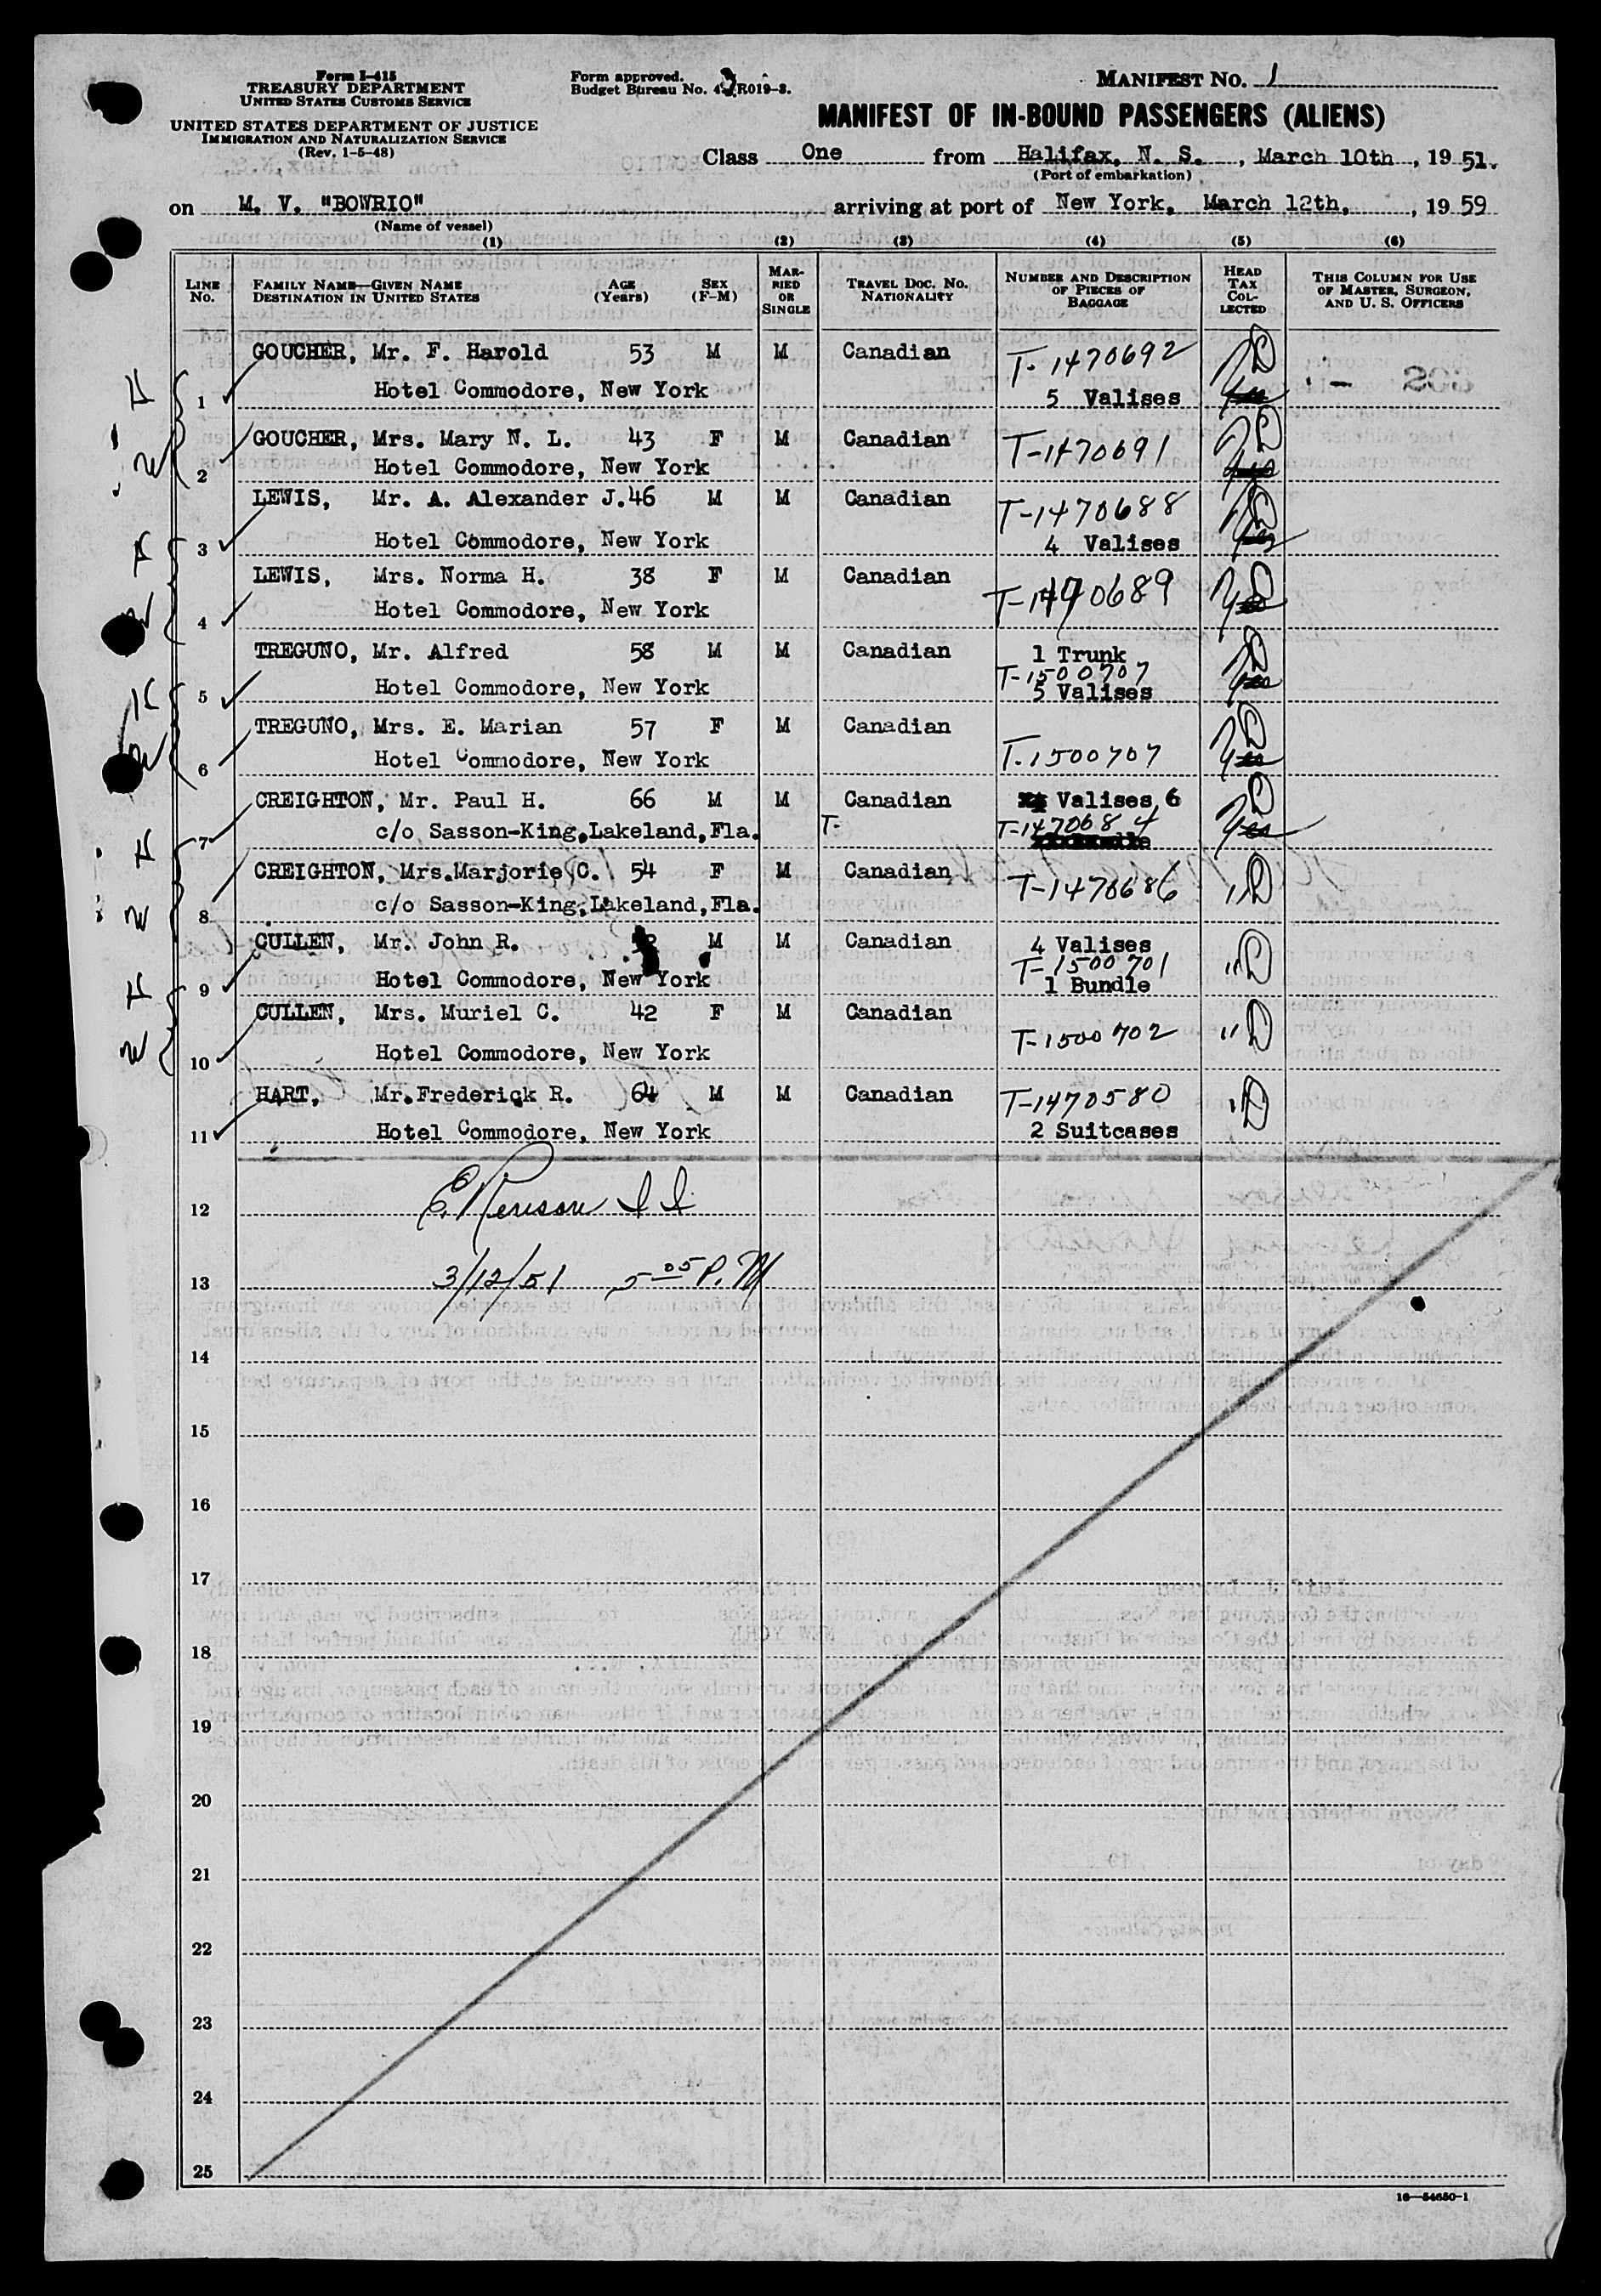 Form I-415
TREASURY DEPARTMENT
UNITED STATES CUSTOMS SERVICE
UNITED STATES DEPARTMENT OF JUSTICE
IMMIGRATION AND NATURALIZATION SERVICE
(Rev. 1-5-48)
Form approved.
Budget Bureau No. 43-R019-3.
MANIFEST NO. 1
MANIFEST OF IN-BOUND PASSENGERS (ALIENS)
Class One from Halifax, N. S., March 10th, 1951.
(Port of embarkation)
on M. V. "BOWRIO" arriving at port of New York, March 12th, , 1959
(Name of vessel)
(1) (2) (3) (4) (5) (6)
LINE NO. FAMILY NAME—GIVEN NAME DESTINATION IN UNITED STATES AGE (Years) SEX (F-M) MARRIED OR SINGLE TRAVEL DOC. NO. NATIONALITY NUMBER AND DESCRIPTION OF PIECES OF BAGGAGE HEAD TAX COLLECTED THIS COLUMN FOR USE OF MASTER, SURGEON, AND U. S. OFFICERS
GOUCHER, Mr. F. Harold 53 M M Canadian T-1470692
1 Hotel Commodore, New York 5 Valises
GOUCHER, Mrs. Mary N. L. 43 F M Canadian T-1470691
2 Hotel Commodore, New York
LEWIS, Mr. A. Alexander J. 46 M M Canadian T-1470688
3 Hotel Commodore, New York 4 Valises
LEWIS, Mrs. Norma H. 38 F M Canadian T-1470689
4 Hotel Commodore, New York
TREGUNO, Mr. Alfred 58 M M Canadian 1 Trunk
T-1500707
5 Hotel Commodore, New York 5 Valises
TREGUNO, Mrs. E. Marian 57 F M Canadian
6 Hotel Commodore, New York T-1500707
CREIGHTON, Mr. Paul H. 66 M M Canadian Valises 6
7 c/o Sasson-King, Lakeland, Fla. T- T-1470684
CREIGHTON, Mrs. Marjorie C. 54 F M Canadian T-1470686
8 c/o Sasson-King, Lakeland, Fla.
CULLEN, Mr. John R. M M Canadian 4 Valises
T-1500701
9 Hotel Commodore, New York 1 Bundle
CULLEN, Mrs. Muriel C. 42 F M Canadian T-1500702
10 Hotel Commodore, New York
HART, Mr. Frederick R. 64 M M Canadian T-1470580
11 Hotel Commodore, New York 2 Suitcases
12 E. Renison I I
13 3/12/51 5 05 P. M
14
15
16
17
18
19
20
21
22
23
24
25
16—54650-1